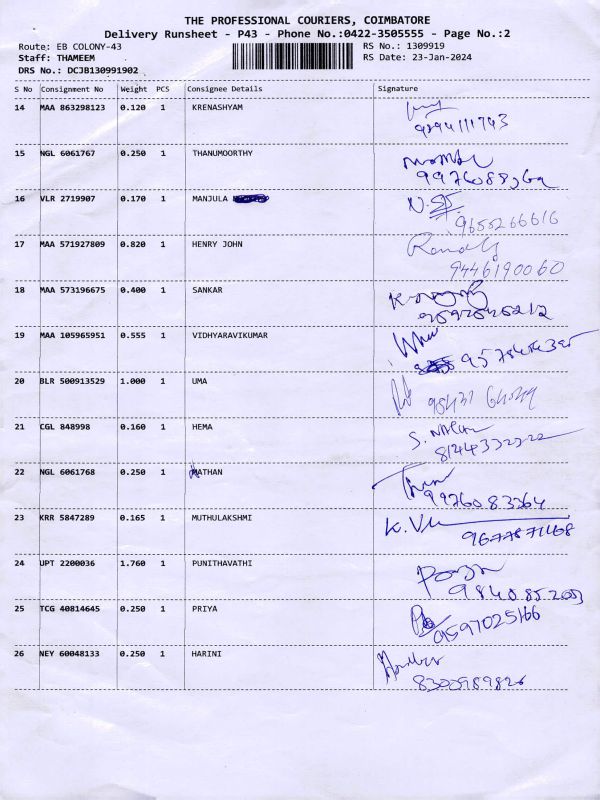 THE PROFESSIONAL COURIERS, COIMBATORE
Delivery Runsheet - P43 - Phone No.:0422-3505555 - Page No.:2
Route: EB COLONY-43 RS No.: 1309919
Staff: THAMEEM RS Date: 23-Jan-2024
DRS No.: DCJB130991902
S No Consignment No Weight PCS Consignee Details Signature
14 MAA 863298123 0.120 1 KRENASHYAM
9894111793
15 NGL 6061767 0.250 1 THANUMOORTHY
16 VLR 2719907 0.170 1 MANJULA
9655266616
17 MAA 571927809 0.820 1 HENRY JOHN
9446190060
18 MAA 573196675 0.400 1 SANKAR
19 MAA 105965951 0.555 1 VIDHYARAVIKUMAR
20 BLR 500913529 1.000 1 UMA
21 CGL 848998 0.160 1 HEMA
8144332222
22 NGL 6061768 0.250 1 NATHAN
23 KRR 5847289 0.165 1 MUTHULAKSHMI
K.
24 UPT 2200036 1.760 1 PUNITHAVATHI
25 TCG 40814645 0.250 1 PRIYA
9597025166
26 NEY 60048133 0.250 1 HARINI
8303989826